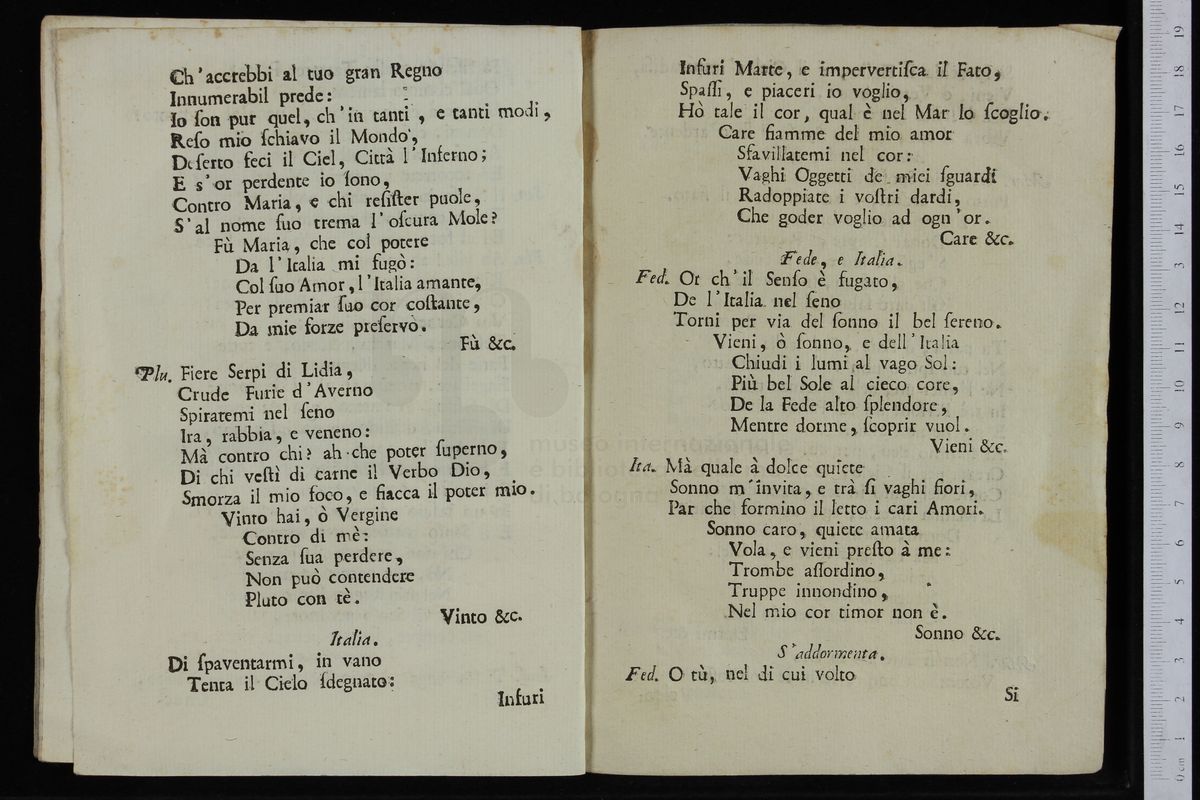 Ch'accrebbi al tuo gran Regno
Innumerabil prede:
Io ſon pur quel, ch'in tanti, e tanti modi,
Reſo mio ſchiavo il Mondo,
Deſerto feci il Ciel, Città l'Inferno;
E s'or perdente io ſono,
Contro Maria, e chi reſiſter puole,
S'al nome ſuo trema l'oſcura Mole?
Fù Maria, che col potere
Da l'Italia mi fugò:
Col ſuo Amor, l'Italia amante,
Per premiar ſuo cor coſtante,
Da mie forze preſervò.
Fù &c.
Plu. Fiere Serpi di Lidia,
Crude Furie d'Averno
Spiratemi nel ſeno
Ira, rabbia, e veneno:
Mà contro chi? ah che poter ſuperno,
Di chi veſtì di carne il Verbo Dio,
Smorza il mio foco, e fiacca il poter mio.
Vinto hai, ò Vergine
Contro di mè:
Senza ſua perdere,
Non può contendere
Pluto con tè.
Vinto &c.
Italia.
Di ſpaventarmi, in vano
Tenta il Cielo ſdegnato:
Infuri
Infuri Marte, e impervertiſca il Fato,
Spaſſi, e piaceri io voglio,
Hò tale il cor, qual è nel Mar lo ſcoglio.
Care fiamme del mio amor
Sfavillatemi nel cor:
Vaghi Oggetti de miei ſguardi
Radoppiate i voſtri dardi,
Che goder voglio ad ogn'or.
Care &c.
Fede, e Italia.
Fed. Or ch'il Senſo è fugato,
De l'Italia nel ſeno
Torni per via del ſonno il bel ſereno.
Vieni, ò ſonno, e dell'Italia
Chiudi i lumi al vago Sol:
Più bel Sole al cieco core,
De la Fede alto ſplendore,
Mentre dorme, ſcoprir vuol.
Vieni &c.
Ita. Mà quale à dolce quiete
Sonno m'invita, e trà ſi vaghi fiori,
Par che formino il letto i cari Amori.
Sonno caro, quiete amata
Vola, e vieni preſto à me:
Trombe aſſordino,
Truppe innondino,
Nel mio cor timor non è.
Sonno &c.
S'addormenta.
Fed. O tù, nel di cui volto
Si
museo internazionale
e bibliot
di bologna
0 cm 1 2 3 4 5 6 7 8 9 10 11 12 13 14 15 16 17 18 19